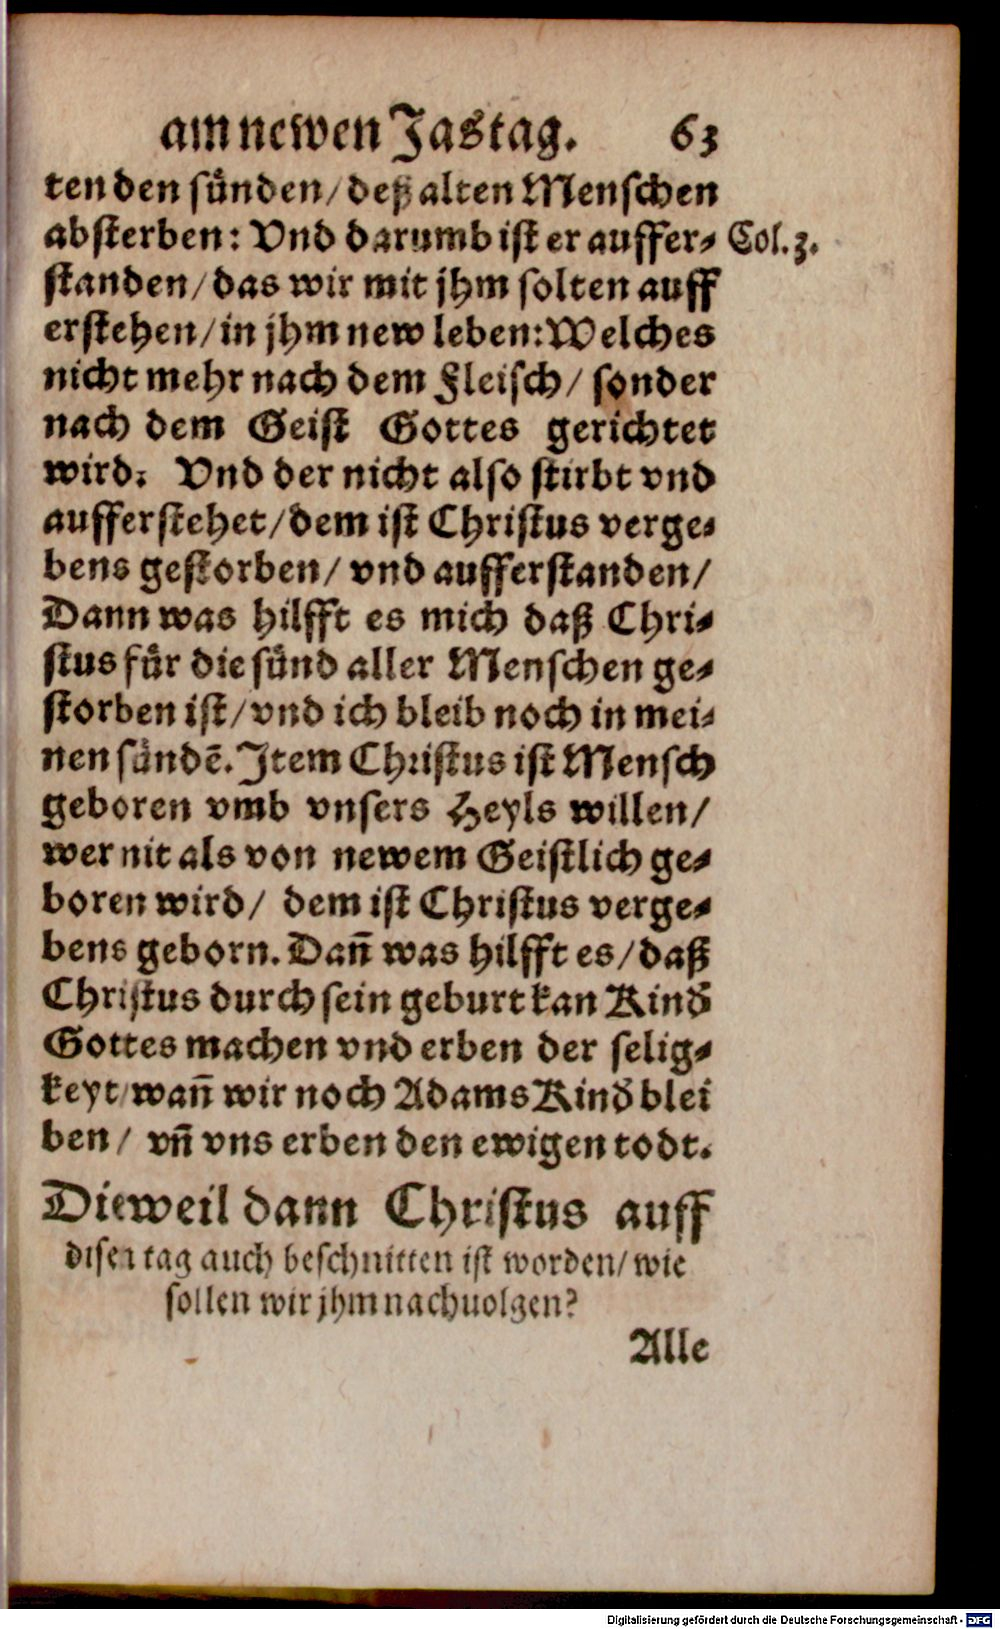 am newen Jastag. 63
ten den sünden/ deß alten Menschen
absterben: Vnd darumb ist er auffer- Col. 3.
standen/ das wir mit jhm solten auff
erstehen/ in jhm new leben: Welches
nicht mehr nach dem Fleisch/ sonder
nach dem Geist Gottes gerichtet
wird: Vnd der nicht also stirbt vnd
aufferstehet/ dem ist Christus verge-
bens gestorben/ vnd aufferstanden/
Dann was hilfft es mich daß Chri-
stus für die sünd aller Menschen ge-
storben ist/ vnd ich bleib noch in mei-
nen sündē. Item Christus ist Mensch
geboren vmb vnsers Heyls willen/
wer nit als von newem Geistlich ge-
boren wird/ dem ist Christus verge-
bens geborn. Dañ was hilfft es/ daß
Christus durch sein geburt kan Kind
Gottes machen vnd erben der selig-
keyt/ wañ wir noch Adams Kind blei
ben/ vñ vns erben den ewigen todt.
Dieweil dann Christus auff
disen tag auch beschnitten ist worden/ wie
sollen wir jhm nachuolgen?
Alle
Digitalisierung gefördert durch die Deutsche Forschungsgemeinschaft - DFG